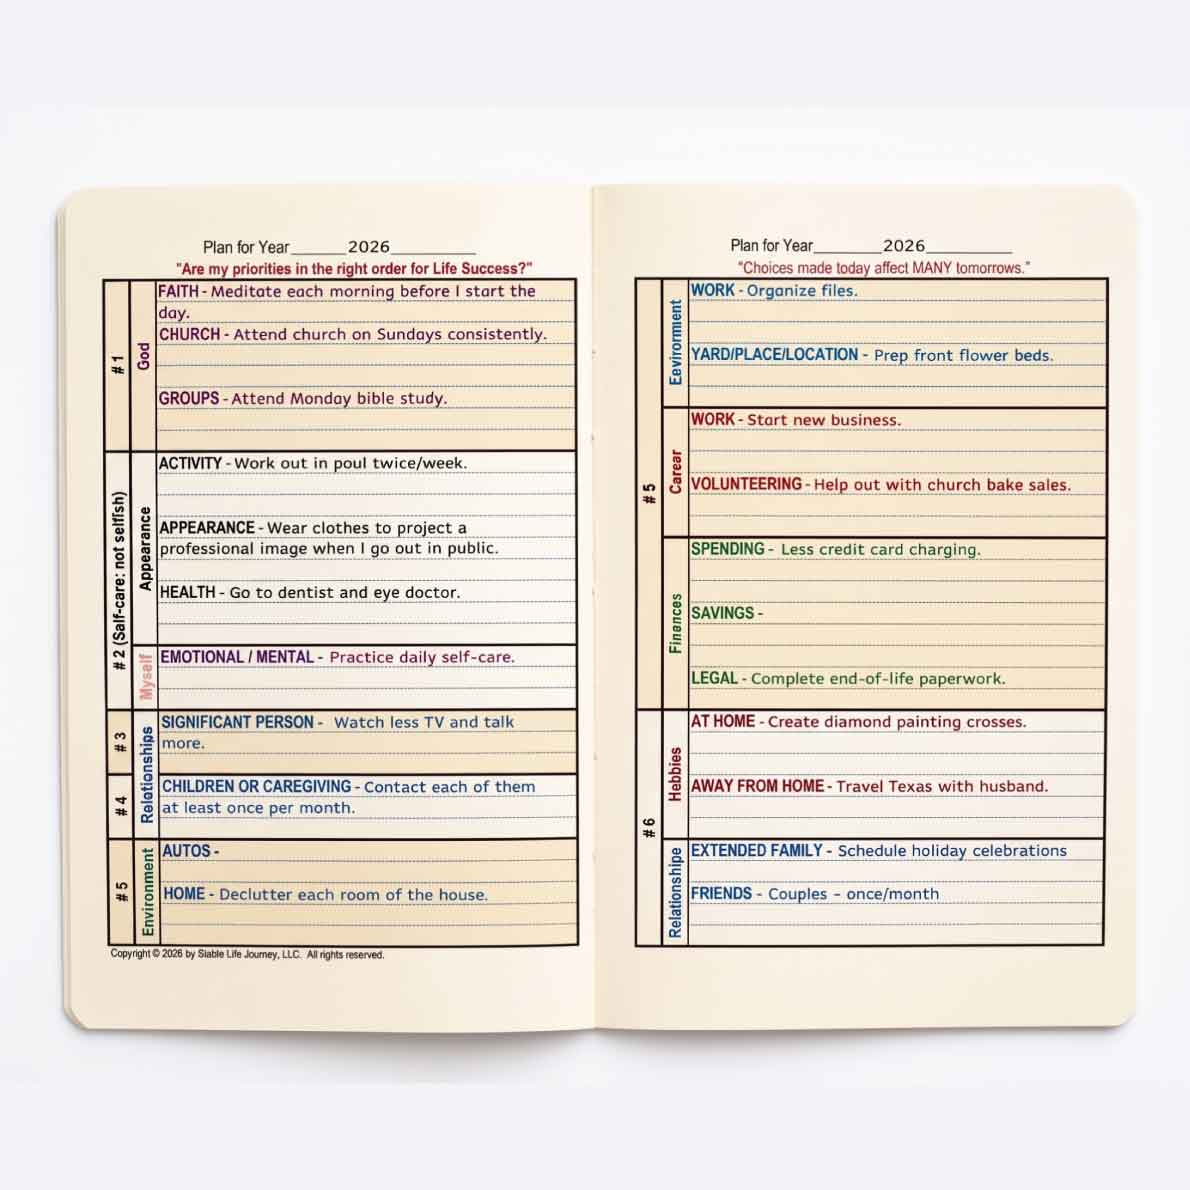 Plan for Year______2026__________
"Are my priorities in the right order for Life Success?"
#1
God
FAITH - Meditate each morning before I start the
day.
CHURCH - Attend church on Sundays consistently.
GROUPS - Attend Monday bible study.
#2 (Salf-care: not selfish)
Appearance
ACTIVITY - Work out in poul twice/week.
APPEARANCE - Wear clothes to project a
professional image when I go out in public.
HEALTH - Go to dentist and eye doctor.
Myself
EMOTIONAL / MENTAL - Practice daily self-care.
#3
Relationships
SIGNIFICANT PERSON - Watch less TV and talk
more.
#4
CHILDREN OR CAREGIVING - Contact each of them
at least once per month.
#5
Environment
AUTOS -
HOME - Declutter each room of the house.
Copyright © 2026 by Siable Life Journey, LLC. All rights reserved.
Plan for Year________2026__________
"Choices made today affect MANY tomorrows."
#5
Eevirorment
WORK - Organize files.
YARD/PLACE/LOCATION - Prep front flower beds.
Carear
WORK - Start new business.
VOLUNTEERING - Help out with church bake sales.
Finances
SPENDING - Less credit card charging.
SAVINGS -
LEGAL - Complete end-of-life paperwork.
#6
Hebbies
AT HOME - Create diamond painting crosses.
AWAY FROM HOME - Travel Texas with husband.
Relationshipe
EXTENDED FAMILY - Schedule holiday celebrations
FRIENDS - Couples - once/month